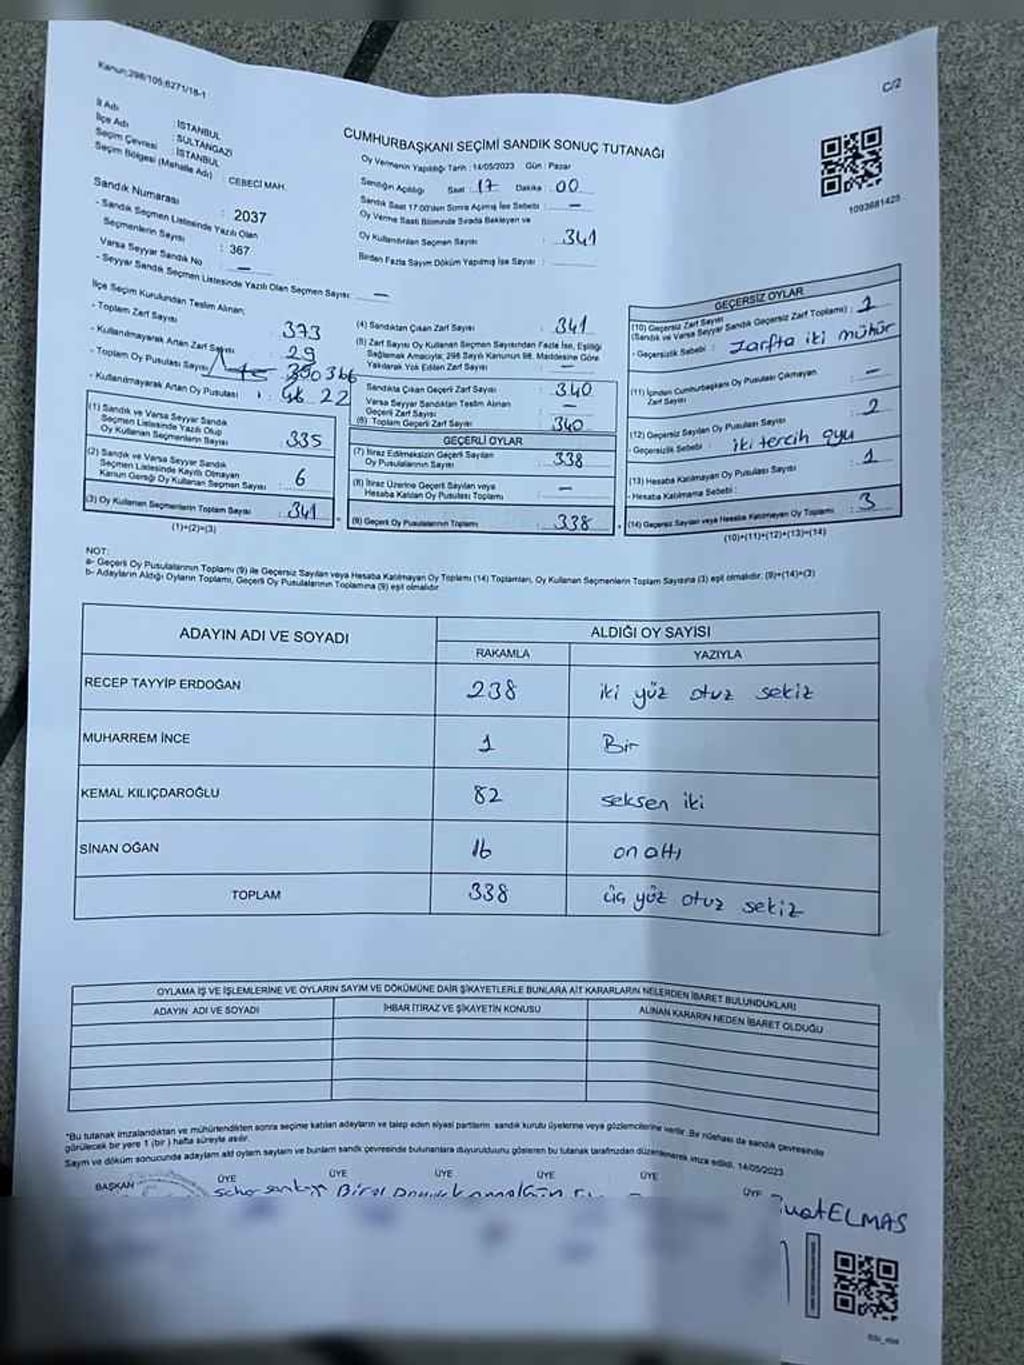 Kanun;298/105;6271/18-1
C/2
İl Adı : İSTANBUL
İlçe Adı : SULTANGAZİ
Seçim Çevresi : İSTANBUL
Seçim Bölgesi (Mahalle Adı) : CEBECİ MAH.
Sandık Numarası : 2037
- Sandık Seçmen Listesinde Yazılı Olan
Seçmenlerin Sayısı : 367
Varsa Seyyar Sandık No : —
- Seyyar Sandık Seçmen Listesinde Yazılı Olan Seçmen Sayısı: —
CUMHURBAŞKANI SEÇİMİ SANDIK SONUÇ TUTANAĞI
Oy Vermenin Yapıldığı Tarih : 14/05/2023 Gün : Pazar
Sandığın Açıldığı Saat : 17 Dakika : 00
Sandık Saat 17:00'den Sonra Açılmış İse Sebebi : —
Oy Verme Saati Bitiminde Sırada Bekleyen ve
Oy Kullandırılan Seçmen Sayısı : 341
Birden Fazla Sayım Döküm Yapılmış İse Sayısı :
1093681425
İlçe Seçim Kurulundan Teslim Alınan;
- Toplam Zarf Sayısı : 373
- Kullanılmayarak Artan Zarf Sayısı : 29
- Toplam Oy Pusulası Sayısı 366
- Kullanılmayarak Artan Oy Pusulası : 22
(1) Sandık ve Varsa Seyyar Sandık
Seçmen Listesinde Yazılı Olup
Oy Kullanan Seçmenlerin Sayısı : 335
(2) Sandık ve Varsa Seyyar Sandık
Seçmen Listesinde Kayıtlı Olmayan
Kanun Gereği Oy Kullanan Seçmen Sayısı : 6
(3) Oy Kullanan Seçmenlerin Toplam Sayısı : 341
(1)+(2)=(3)
(4) Sandıktan Çıkan Zarf Sayısı : 341
(5) Zarf Sayısı Oy Kullanan Seçmen Sayısından Fazla İse, Eşitliği
Sağlamak Amacıyla; 298 Sayılı Kanunun 98. Maddesine Göre
Yakılarak Yok Edilen Zarf Sayısı : —
Sandıkta Çıkan Geçerli Zarf Sayısı : 340
Varsa Seyyar Sandıktan Teslim Alınan
Geçerli Zarf Sayısı : —
(6) Toplam Geçerli Zarf Sayısı : 340
GEÇERLİ OYLAR
(7) İtiraz Edilmeksizin Geçerli Sayılan
Oy Pusulalarının Sayısı : 338
(8) İtiraz Üzerine Geçerli Sayılan veya
Hesaba Katılan Oy Pusulası Toplamı : —
(9) Geçerli Oy Pusulalarının Toplamı : 338
GEÇERSİZ OYLAR
(10) Geçersiz Zarf Sayısı
(Sandık ve Varsa Seyyar Sandık Geçersiz Zarf Toplamı) : 1
- Geçersizlik Sebebi : Zarfta iki mühür
(11) İçinden Cumhurbaşkanı Oy Pusulası Çıkmayan
Zarf Sayısı : —
(12) Geçersiz Sayılan Oy Pusulası Sayısı : 2
- Geçersizlik Sebebi : iki tercih oyu
(13) Hesaba Katılmayan Oy Pusulası Sayısı : 1
- Hesaba Katılmama Sebebi :
(14) Geçersiz Sayılan veya Hesaba Katılmayan Oy Toplamı : 3
(10)+(11)+(12)+(13)=(14)
NOT:
a- Geçerli Oy Pusulalarının Toplamı (9) ile Geçersiz Sayılan veya Hesaba Katılmayan Oy Toplamı (14) Toplamları, Oy Kullanan Seçmenlerin Toplam Sayısına (3) eşit olmalıdır. (9)+(14)=(3)
b- Adayların Aldığı Oyların Toplamı, Geçerli Oy Pusulalarının Toplamına (9) eşit olmalıdır
ADAYIN ADI VE SOYADI
ALDIĞI OY SAYISI
RAKAMLA YAZIYLA
RECEP TAYYİP ERDOĞAN 238 iki yüz otuz sekiz
MUHARREM İNCE 1 Bir
KEMAL KILIÇDAROĞLU 82 seksen iki
SİNAN OĞAN 16 on altı
TOPLAM 338 üç yüz otuz sekiz
OYLAMA İŞ VE İŞLEMLERİNE VE OYLARIN SAYIM VE DÖKÜMÜNE DAİR ŞİKAYETLERLE BUNLARA AİT KARARLARIN NELERDEN İBARET BULUNDUKLARI
ADAYIN ADI VE SOYADI İHBAR İTİRAZ VE ŞİKAYETİN KONUSU ALINAN KARARIN NEDEN İBARET OLDUĞU
*Bu tutanak imzalandıktan ve mühürlendikten sonra seçime katılan adayların ve talep eden siyasi partilerin sandık kurulu üyelerine veya gözlemcilerine verilir. Bir nüshası da sandık çevresinde
görülecek bir yere 1 (bir) hafta süreyle asılır.
Sayım ve döküm sonucunda adayların aldığı oyların sayısını ve bunların sandık çevresinde bulunanlara duyurulduğunu gösteren bu tutanak tarafımızdan düzenlenerek imza edildi. 14/05/2023
BAŞKAN ÜYE ÜYE ÜYE ÜYE ÜYE ÜYE
ELMAS